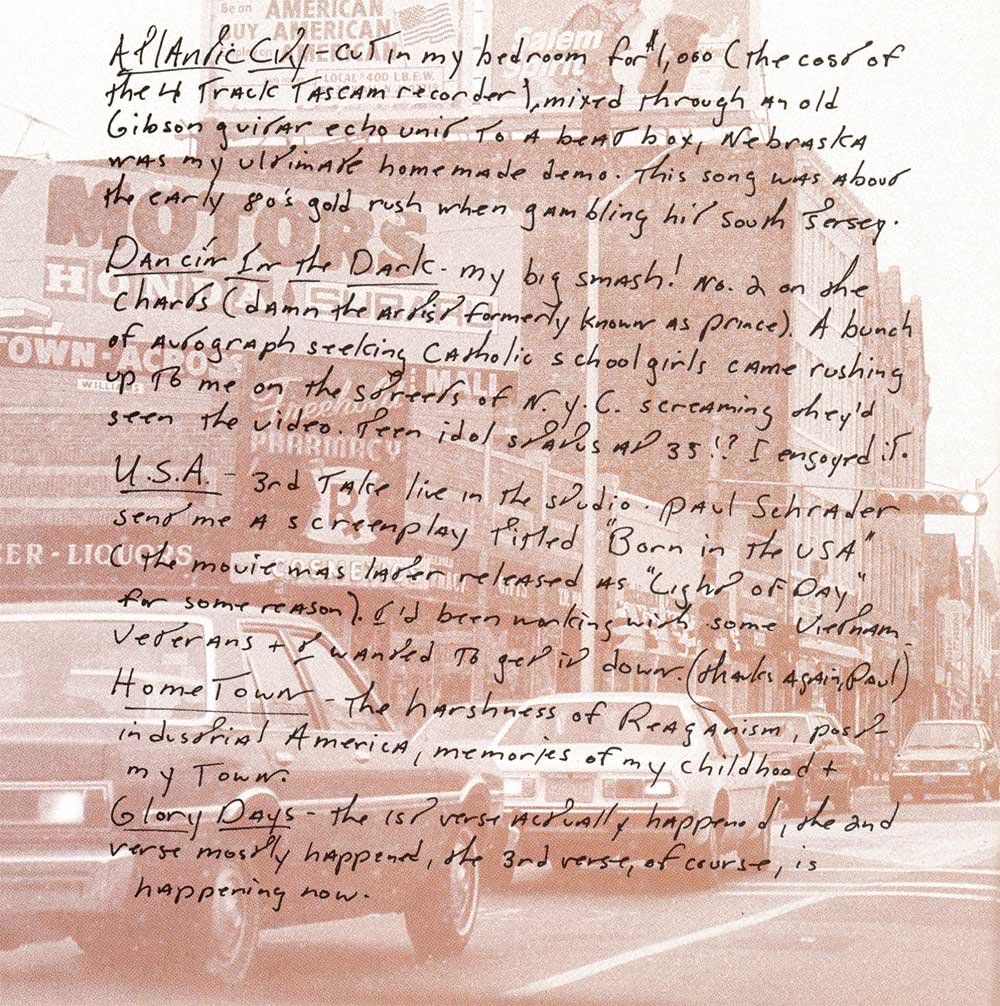 Be on AMERICAN
BUY AMERICAN
AMERICAN
LOCAL 400 I.B.E.W.
Salem
Spirit
Atlantic City - cut in my bedroom for $1,000 (the cost of
the 4 Track Tascam recorder), mixed through an old
Gibson guitar echo unit to a beat box, Nebraska
was my ultimate homemade demo. This song was about
the early 80's gold rush when gambling hit south Jersey.
MOTORS
HONDA SUBARU
TOWN-ACROSS
WILLIAMS
MALL
Freehold
PHARMACY
Dancin In the Dark - my big smash! No. 2 on the
charts (damn the artist formerly known as prince). A bunch
of autograph seeking Catholic schoolgirls came rushing
up to me on the streets of N.Y.C. screaming they'd
seen the video. Teen idol status at 35!? I enjoyed it.
U.S.A. - 3rd Take live in the studio. Paul Schrader
sent me a screenplay titled "Born in the USA"
(the movie was later released as "Light of Day"
for some reason). I'd been working with some Vietnam
Veterans + I wanted to get it down. (thanks again, Paul)
ER - LIQUORS
COSMETICS
HomeTown - the harshness of Reaganism, post-
industrial America, memories of my childhood +
my Town.
Glory Days - the 1st verse actually happened, the 2nd
verse mostly happened, the 3rd verse, of course, is
happening now.